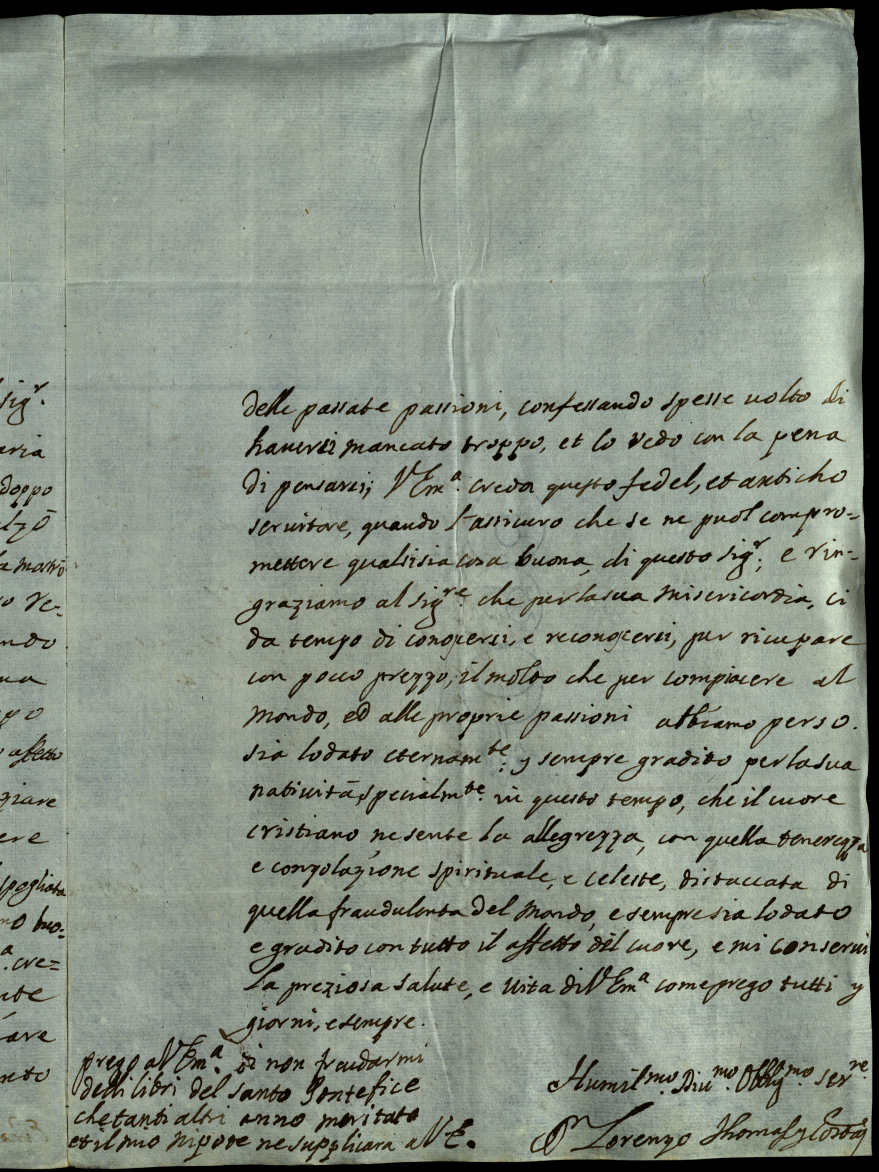 delle passate passioni, confessando spesse volto di
haversi mancato troppo, et lo vedo con la pena
di pensarsi; V Em.ª creda questo fedel, et anticho
servitore, quando l'assicuro che se ne puol compro-
mettere qualsisia cosa buona, di questo sig.r, e rin-
graziamo al sig.re che per la sua misericordia, ci
da tempo di conoscersi, e reconoscersi, per ricuperare
con pocco prezzo, il molto che per compiacere al
mondo, ed alle proprie passioni abbiamo perso.
sia lodato eternam.te y sempre gradito per la sua
natività, specialm.te in questo tempo, che il cuore
cristiano ne sente la allegrezza, con quella tenerezza
e consolazione spirituale, e celeste, distaccata di
quella fraudulenta del mondo, e sempre sia lodato
e gradito con tutto il affetto del cuore, e mi conservi
La preziosa salute, e vita di V Em.ª come prego tutti y
giorni, e sempre.
prego al V Em.ª di non fraudarmi
degli libri del santo Pontefice
che tanti altri anno meritato
et il mio nipote ne supplicara a V E.
Humil.mo Div.mo Obblig.mo ser.re
Lorenzo Thomas y
sig.r
aria
doppo
ndo
affetto
ere
spogliata
cre=